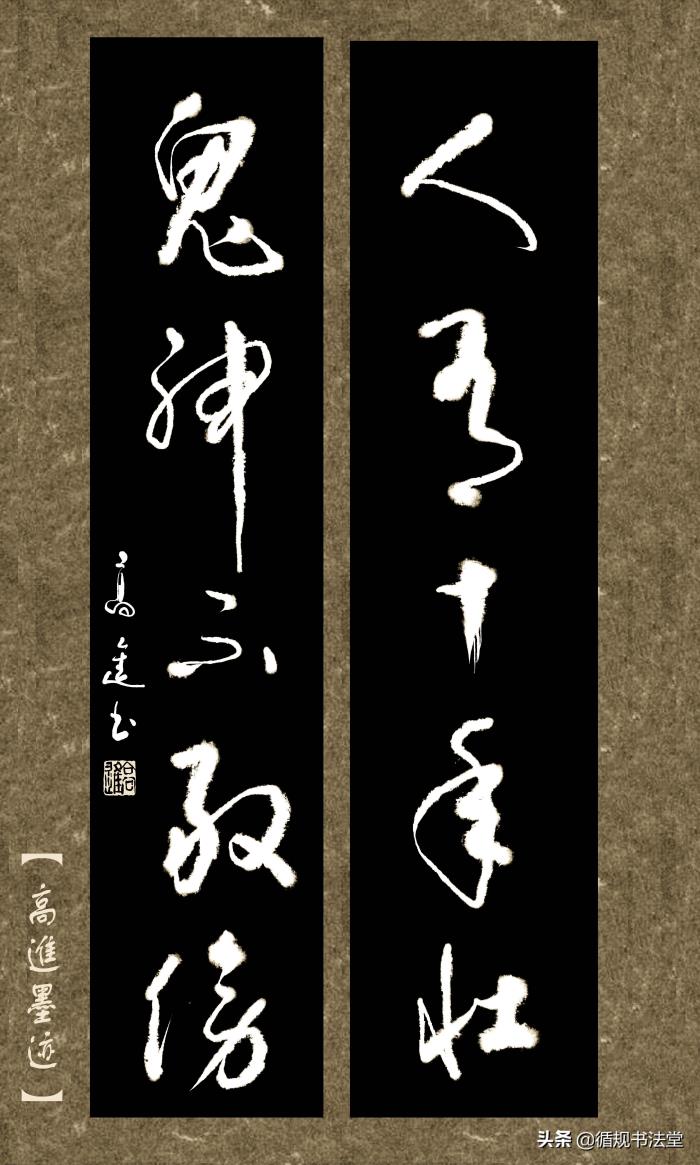 人有十年壮
鬼神不敢傍
高進书
【高進墨迹】
头条 @循规书法堂